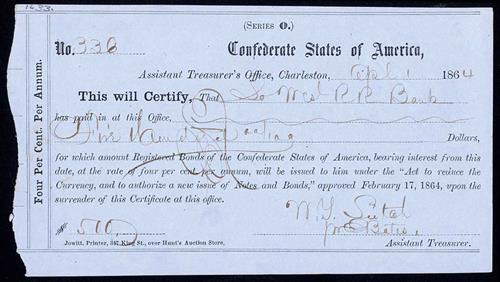 1633.
(SERIES O.)
No. 336 Confederate States of America,
Assistant Treasurer's Office, Charleston, Apl 1 1864
This will Certify, That So Wes R R Bank
has paid in at this Office,
Five Hundred Dollars,
for which amount Registered Bonds of the Confederate States of America, bearing interest from this
date, at the rate of four per cent per annum, will be issued to him under the "Act to reduce the
Currency, and to authorize a new issue of Notes and Bonds," approved February 17, 1864, upon the
surrender of this Certificate at this office.
$500
Assistant Treasurer.
Jowitt, Printer, 347 King St., over Hunt's Auction Store,
Four Per Cent. Per Annum.